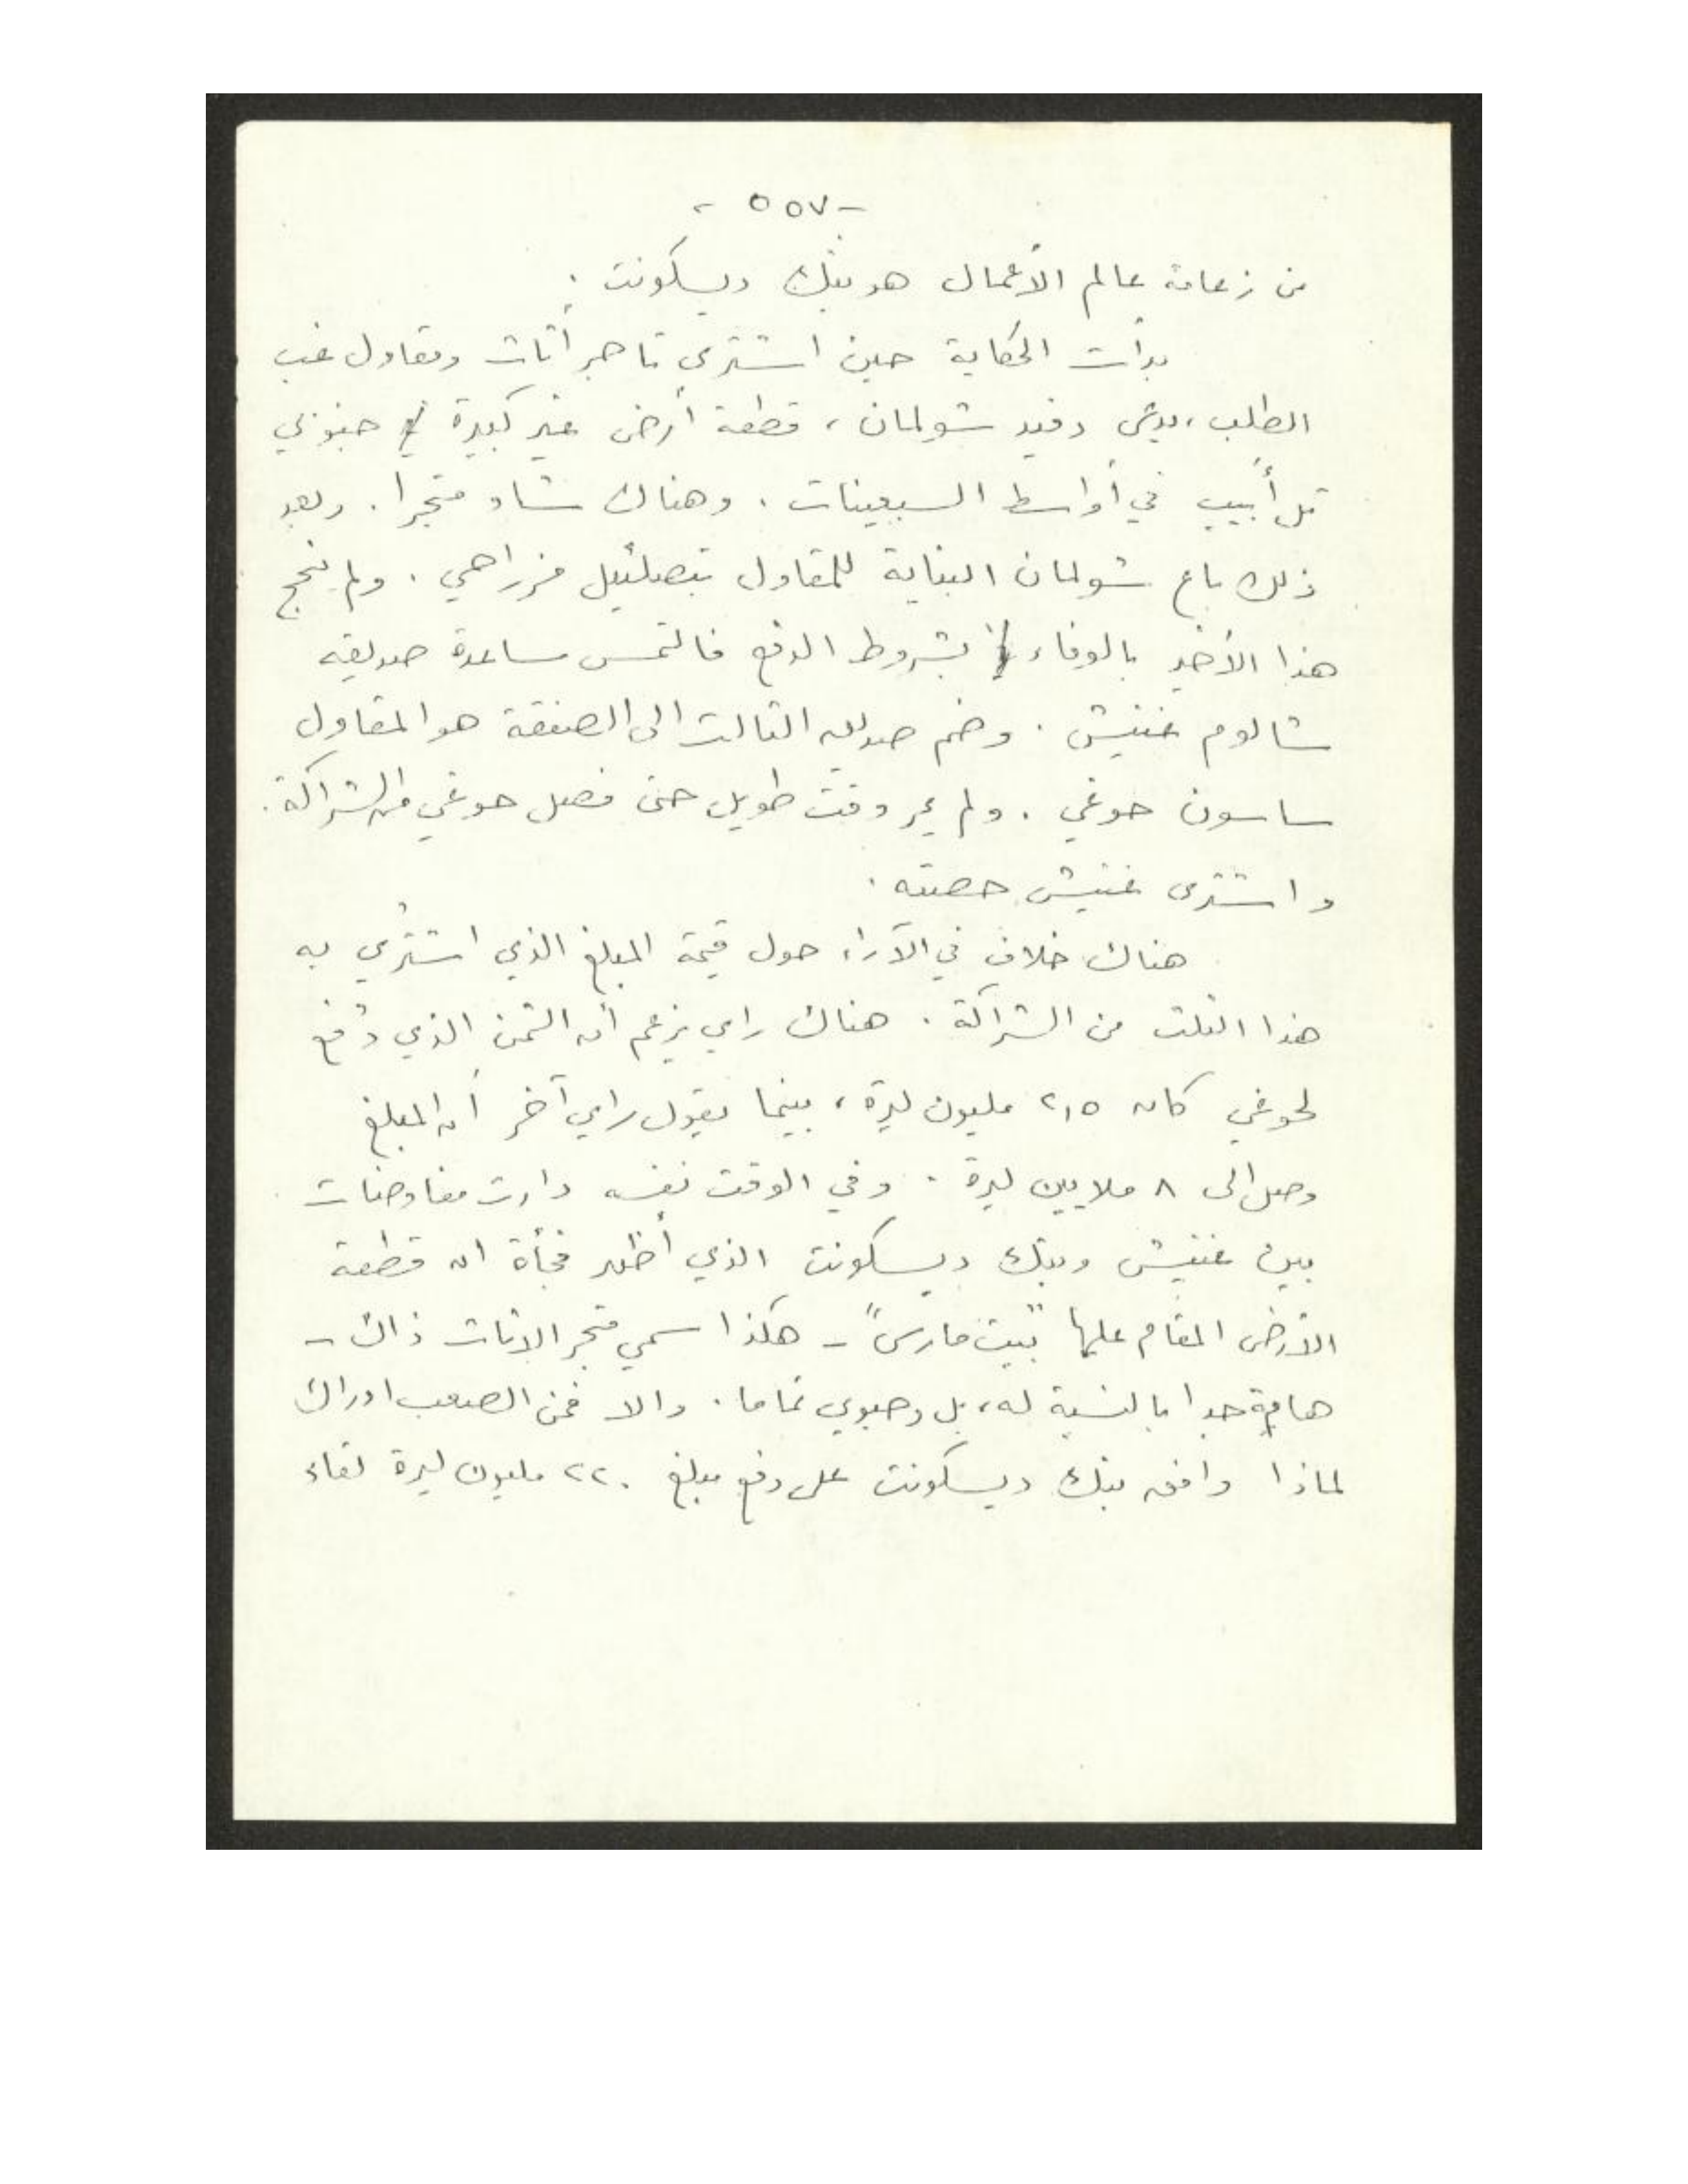 - ٥٥٧ -
من زعامة عالم الأعمال هو بنك ديسكونت .
بدأت الحكاية حين اشترى تاجر أثاث ومقاول غب
الطلب، يدعى دفيد شولمان، قطعة أرض غير كبيرة جنوبي
تل أبيب في أواسط السبعينات . وهناك شاد متجرا . وبعد
ذلك باع شولمان البناية للمقاول بتصلئيل مزراحي . ولم ينجح
هذا الأخير بالوفاء بشروط الدفع فالتمس مساعدة صديقه
شالوم غنيش . وضم صديقه الثالث الى الصفقة هو المقاول
ساسون حوغي . ولم يمر وقت طويل حتى فصل حوغي من الشراكة .
واشترى غنيش حصته .
هناك خلاف في الآراء حول قيمة المبلغ الذي اشتُري به
هذا الثلث من الشراكة . هناك راي يزعم أن الثمن الذي دُفع
لحوغي كان ٢,٥ مليون ليرة، بينما يقول راي آخر أن المبلغ
وصل الى ٨ ملايين ليرة . وفي الوقت نفسه دارت مفاوضات
بين غنيش وبنك ديسكونت الذي أظهر فجأة ان قطعة
الأرض المقام عليها "بيت مارس" - هكذا سمي متجر الاثاث ذاك -
هامة جدا بالنسبة له، بل وحيوي تماما . والا فمن الصعب ادراك
لماذا وافق بنك ديسكونت على دفع مبلغ ٢٢٠ مليون ليرة لقاء